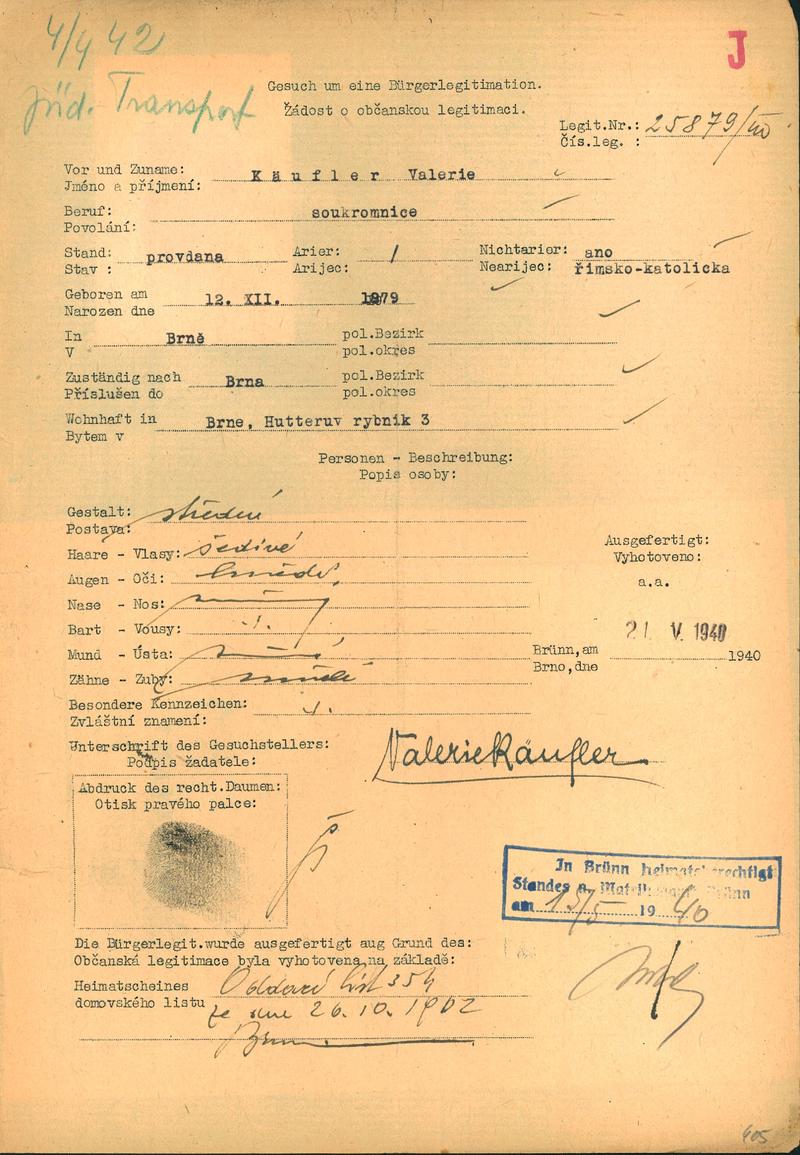 4/4 42
J
jüd. Transport
Gesuch um eine Bürgerlegitimation.
Žádost o občanskou legitimaci.
Legit.Nr.: 25879/
Čís.leg. :
Vor und Zuname: Käufler Valerie
Jméno a příjmení:
Beruf: soukromnice
Povolání:
Stand: provdana Arier: / Nichtarier: ano
Stav : Arijec: Nearijec: řimsko-katolicka
Geboren am 12. XII. 1879
Narozen dne
In Brně pol.Bezirk
V pol.okres
Zuständig nach Brna pol.Bezirk
Příslušen do pol.okres
Wohnhaft in Brne, Hutteruv rybnik 3
Bytem v
Personen - Beschreibung:
Popis osoby:
Gestalt: střední
Postava:
Haare - Vlasy: šedivé
Augen - Oči: hnědé
Nase - Nos:
Bart - Vousy: ./.
Mund - Ústa:
Zähne - Zuby:
Besondere Kennzeichen: ./.
Zvláštní znamení:
Ausgefertigt:
Vyhotoveno:
a.a.
21 V. 1940
Brünn,am 1940
Brno,dne
Unterschrift des Gesuchstellers: Valerie Käufler
Podpis žadatele:
Abdruck des recht.Daumen:
Otisk pravého palce:
In Brünn heimatsberechtigt
Standes u. Brünn
am 13/5 1940
Die Bürgerlegit.wurde ausgefertigt aug Grund des:
Občanská legitimace byla vyhotovena,na základě:
Heimatscheines Oddací list 354
domovského listu ze dne 26.10.1902
Brno
405